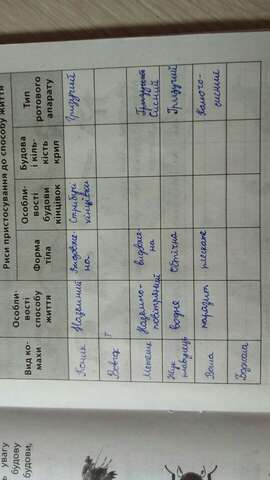 Риси пристосування до способу життя
Вид ко-
махи
Особли-
вості
способу
життя
Форма
тіла
Особли-
вості
будови
кінцівок
Будова
і кіль-
кість
крил
Тип
ротового
апарату
Коник
Наземний
видовже-
на
Стрибучі
кінцівки
Гризучий
Вовчок
Т
Метелик
Наземно-
повітряний
видовже-
на
Сисний
Жук
плавунець
водне
Обтічна
Гризучий
Воша
паразит
плескате
Колючо-
сисний
Бджола
увагу
будову
будови,